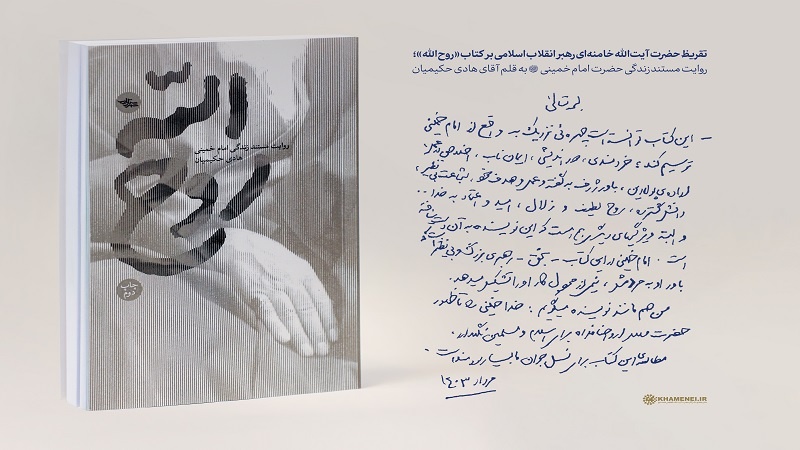 تقریظ حضرت آیت‌الله خامنه‌ای رهبر انقلاب اسلامی بر کتاب «روح الله»؛
روایت مستند زندگی حضرت امام خمینی به قلم آقای هادی حکیمیان
بسمه تعالی
- این کتاب توانسته است چهره‌ئی نزدیک به واقع از امام خمینی
ترسیم کند؛ خردمندی، دوراندیشی، ایمان ناب،
اراده‌ی پولادین، باور ژرف به گفته و عمل و هدف خود، شجاعت بی‌نظیر،
دانش گسترده، روح لطیف و زلال، امید و اعتماد به خدا ..
و البته ویژگیهای دیگری هم است که این نویسنده به آن دست نیافته
است. امام خمینی در این کتاب - بحق - رهبری بزرگ و بی‌نظیر است که
باور او به مردمش، نیمی از
من هم مانند نویسنده میگویم: خدا خمینی را تا ظهور
حضرت مهدی ارواحنا فداه برای اسلام و مسلمین نگهدارد.
مطالعه‌ی این کتاب برای نسل جوان ما بسیار سودمند است.
مرداد ۱۴۰۳
KHAMENEI.IR
الله
روح
روایت مستند زندگی امام خمینی
هادی حکیمیان
چاپ
دوم